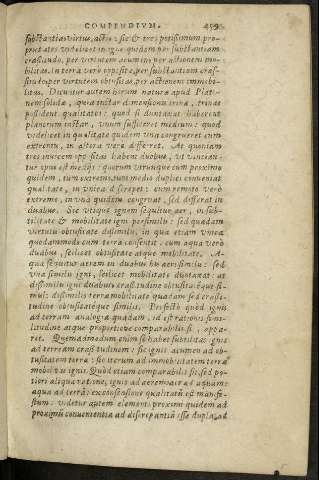 COMPENDIVM. 459
substantias virtus, actio: sic & tres potissimum pro-
prietates videlicet in igne quidem per substantiam
crassiudo, per virtutem acumin, per actionem mo-
bilitas. In terra verò opposite, per substantiam cras-
situdo, per virtutem obtusitas, per actionem immobi-
litas. Dicuntur autem horum natura apud Plato-
nem solidæ, quia instar dimensionū trina, trinas
possident qualitates: quod si duntaxat haberent
planorum instar, vnum sufficeret medium: quod
videlicet in qualitate quidem vna congrueret cum
extremo, in altera verò differret. At quoniam
tres inuicem oppositas habent duobus, vt vincean-
tur opus est medijs: quorum vtrunque cum proximo
quidem, tum extremo, tum medio duplici conueniat
qualitate, in vnica discrepet: cum remoto verò
extremo, in vna quidem congruat, sed differat in
duabus. Sic vtique ignem sequitur aer, in sub-
tilitate & mobilitate igni persimilis: sed quadam
virtutis obtusitate dissimilis, in qua etiam vnica
quodammodo cum terra consentit: cum aqua verò
duabus, scilicet obtusitate atque mobilitate. A-
qua sequitur aërem in duabus his aeri similis: sed
vna similis igni, scilicet mobilitate duntaxat: at
dissimilis igni duabus crassitudine obtusitatéque si-
mul: dissimilis terra mobilitate quadam sed crassi-
tudine obtusitatéque similis. Profectò quòd ignis
ad terram analoga quadam, id est rationis simi-
litudine atque proportione comparabilis sit, appa-
ret. Quemadmodum enim se habet subtilitas ignis
ad terream crassitudinem: sic ignis acumen ad ob-
tusitatem terræ: sic iterum ad immobilitatem terræ
mobilitas ignis. Quòd etiam comparabilis sit, sed po-
tiori aliqua ratione, ignis ad aerem, aer ad aquam:
aqua ad terrā: ex consensione qualitatū est manife-
stum: videtur autem elementi proximi quidem ad
proximū conuenientia ad discrepantiā esse dupla, ad